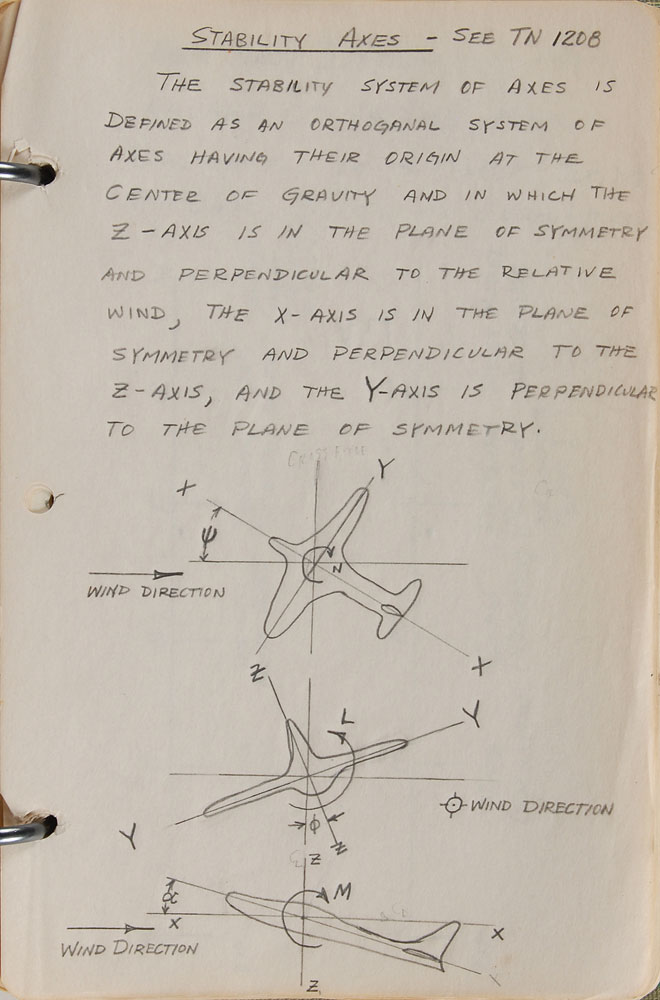 STABILITY AXES - SEE TN 1208
THE STABILITY SYSTEM OF AXES IS
DEFINED AS AN ORTHOGANAL SYSTEM OF
AXES HAVING THEIR ORIGIN AT THE
CENTER OF GRAVITY AND IN WHICH THE
Z-AXIS IS IN THE PLANE OF SYMMETRY
AND PERPENDICULAR TO THE RELATIVE
WIND, THE X-AXIS IS IN THE PLANE OF
SYMMETRY AND PERPENDICULAR TO THE
Z-AXIS, AND THE Y-AXIS IS PERPENDICULAR
TO THE PLANE OF SYMMETRY.
Y
X
ψ
N
WIND DIRECTION
X
Z
L
Y
WIND DIRECTION
Y
φ
Z
Z
M
α
X
X
WIND DIRECTION
Z